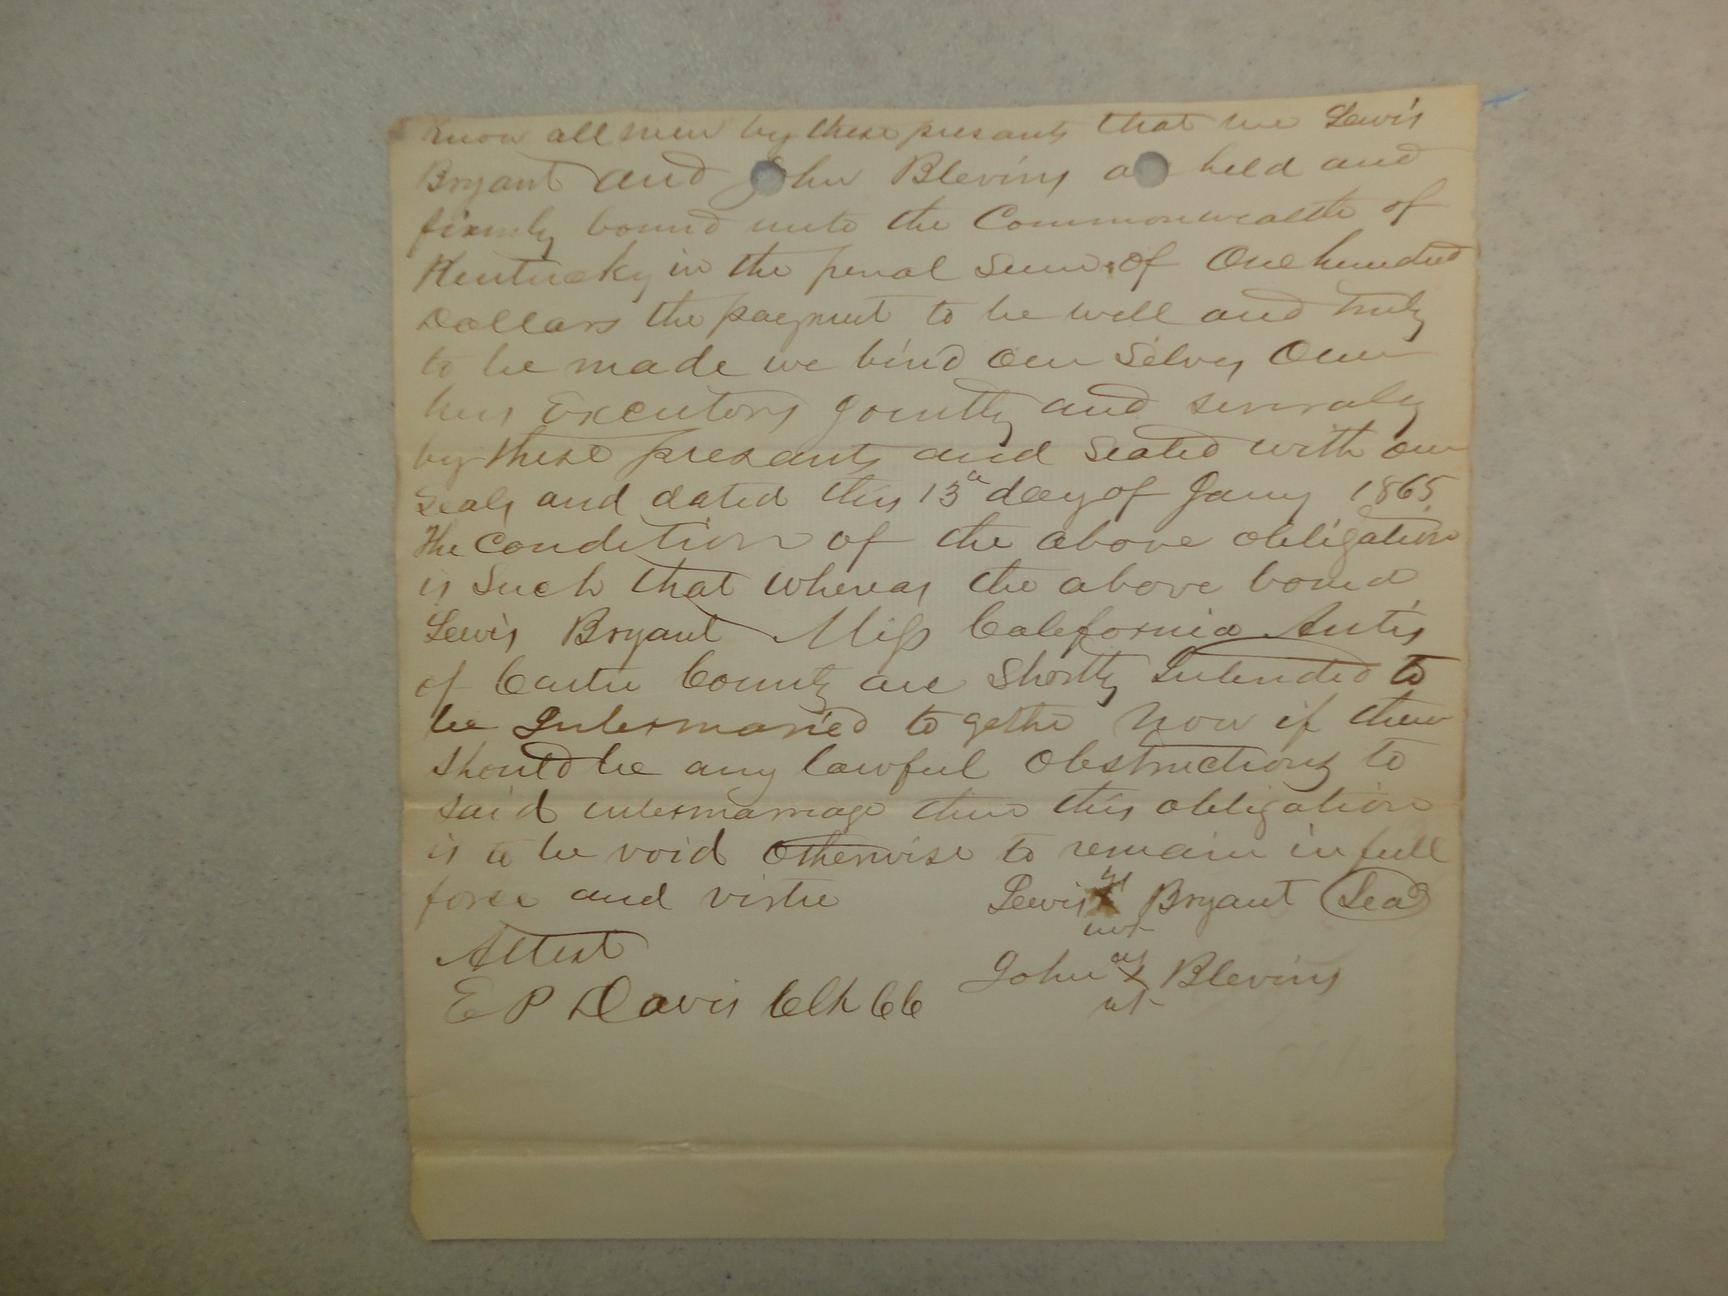 Know all men by these presants that we Lewis
Bryant and John Blevins a held and
firmly bound unto the Commonwealth of
Kentucky in the penal Sum of One hundred
Dollars the payment to be well and truly
to be made we bind our Selvs Our
heirs Executors Jointly and severaly
by these presants and Sealed with our
Seals and dated this 13th day of Jany 1865
The Condition of the above obligation
is Such that whereas the above bound
Lewis Bryant Miss California Antis
of Carter County are Shortly Intended to
be Intermaried to gether Now if there
Should be any lawful Obstructions to
said intermarriage then this obligation
is to be void Otherwise to remain in full
forse and virtue Lewis X Bryant Seal
Attest
John X Blevins
E P Davis Clk CC